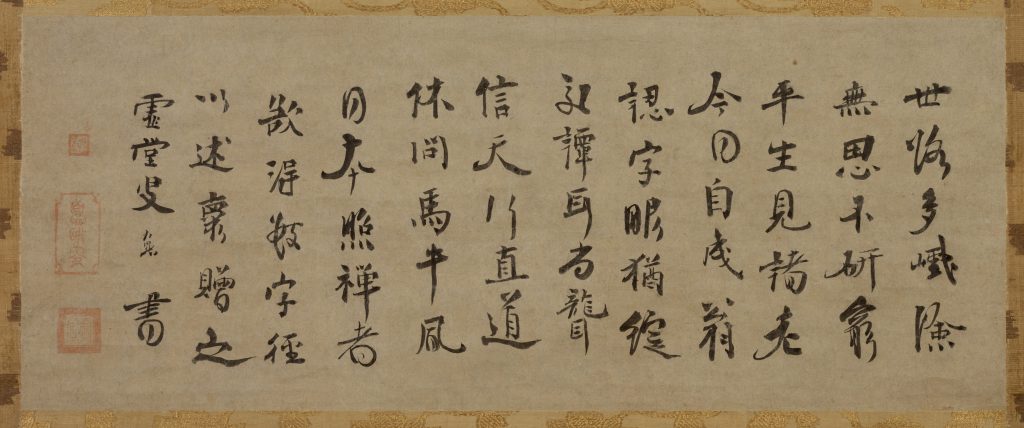 世路多巇險
無思不研窮
平生見諸老
今日自成翁
認字眼猶綻
交譚耳尚聾
信天行直道
休問馬牛風
日本照禅者
欲得數字徑
以述懷贈之
虛堂叟愚書